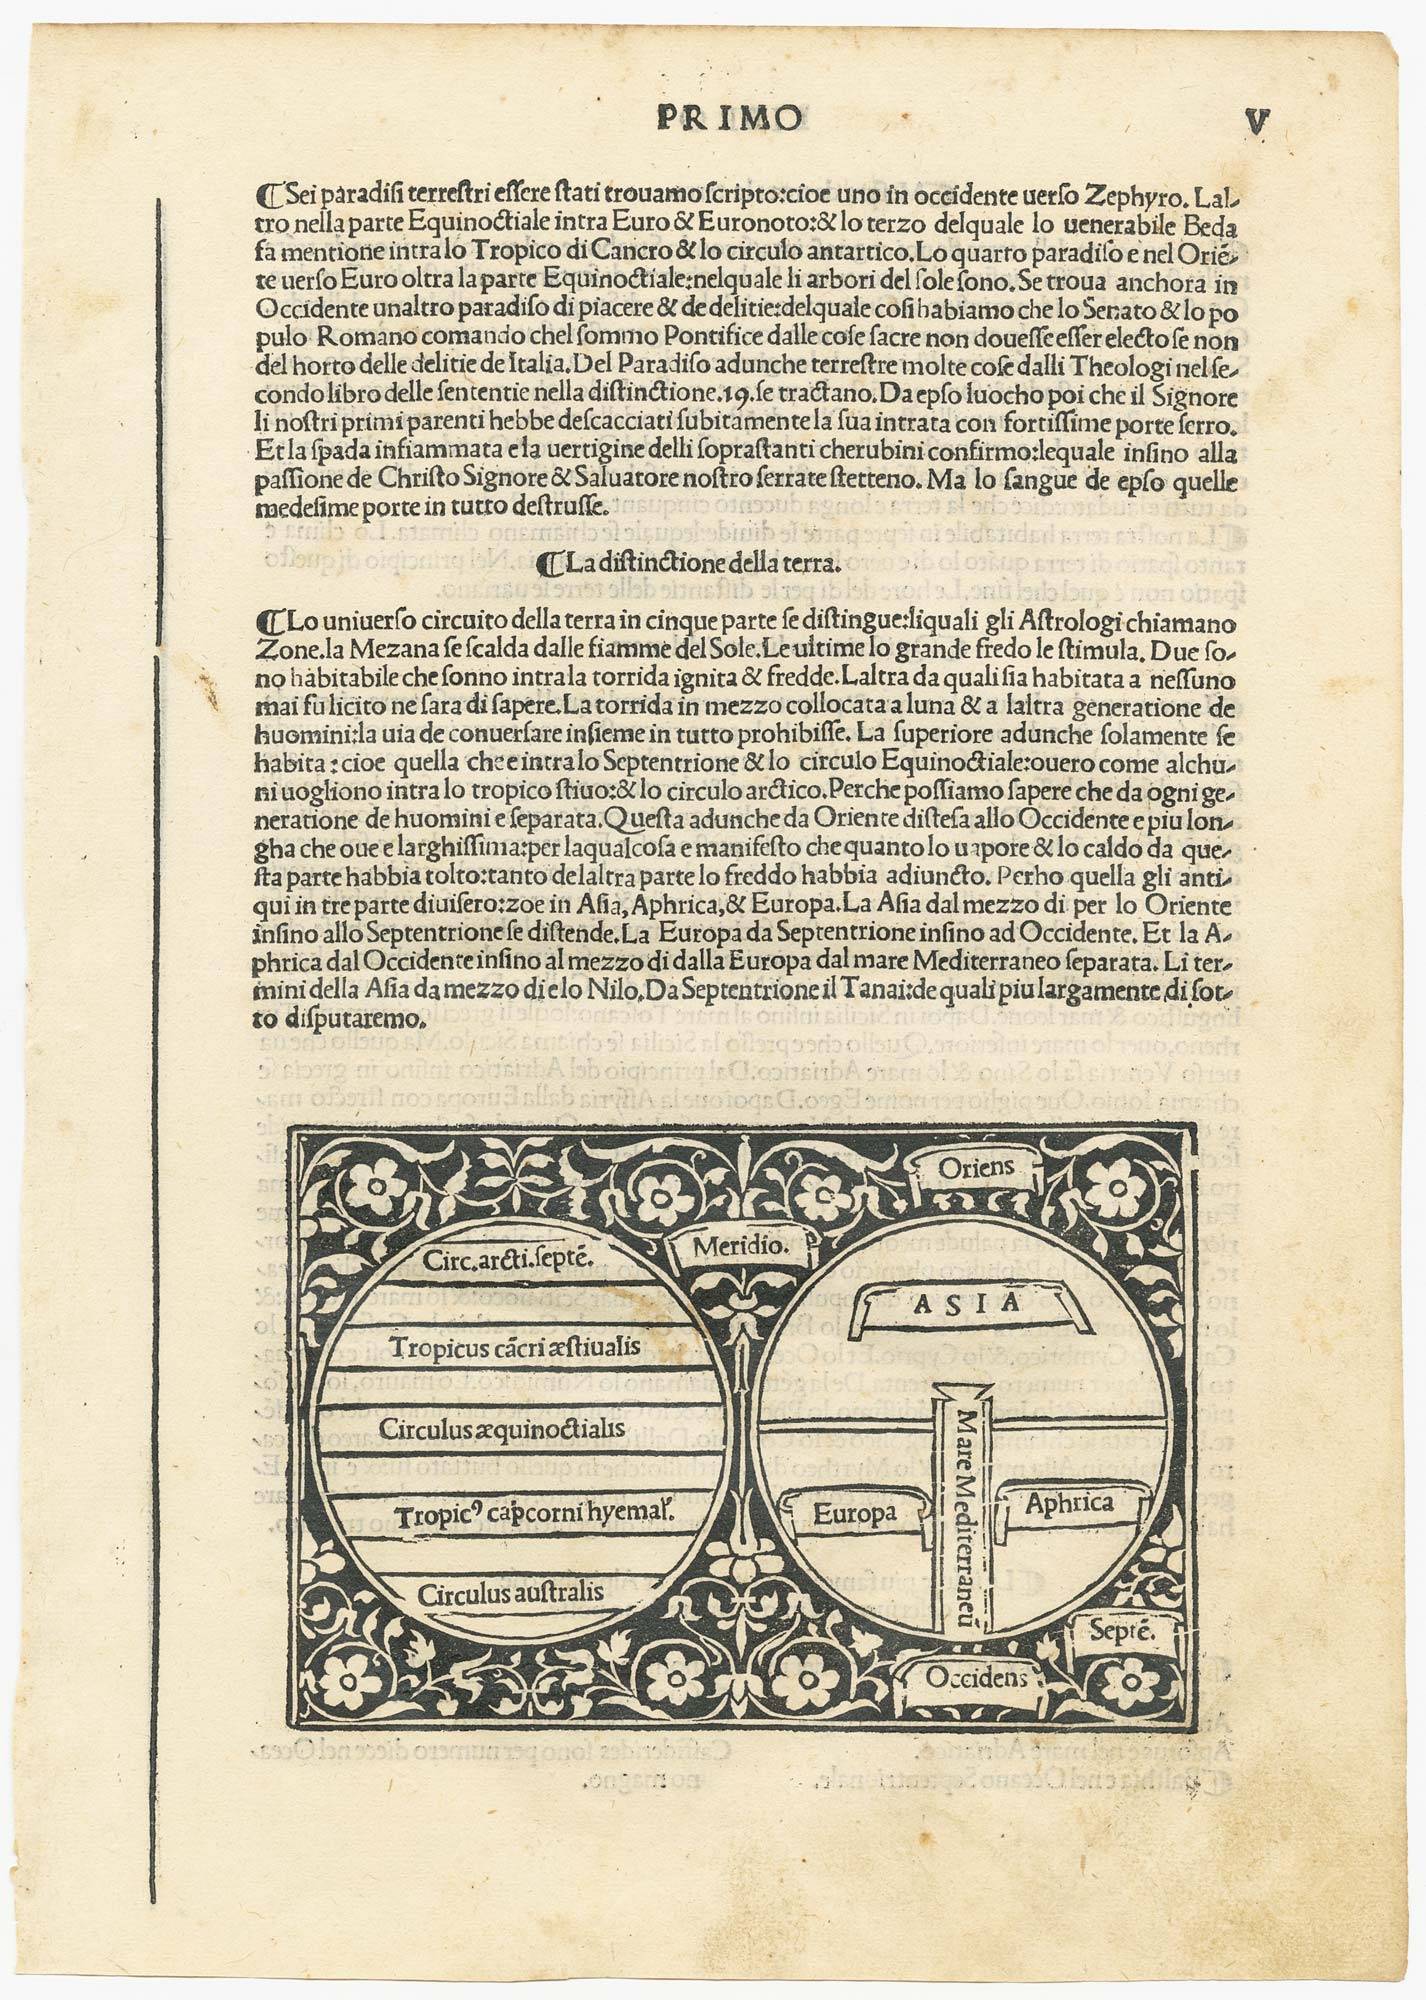 PRIMO V
☾Sei paradisi terrestri essere stati trouamo scripto:cioe uno in occidente uerso Zephyro. Lal-
tro nella parte Equinoctiale intra Euro & Euronoto:& lo terzo delquale lo uenerabile Beda
fa mentione intra lo Tropico di Cancro & lo circulo antartico.Lo quarto paradiso e nel Oriē-
te uerso Euro oltra la parte Equinoctiale:nelquale li arbori del sole sono. Se troua anchora in
Occidente unaltro paradiso di piacere & de delitie:delquale cosi habiamo che lo Senato & lo po
pulo Romano comando chel sommo Pontifice dalle cose sacre non douesse esser electo se non
del horto delle delitie de Italia.Del Paradiso adunche terrestre molte cose dalli Theologi nel se-
condo libro delle sententie nella distinctione.19.se tractano.Da epso luocho poi che il Signore
li nostri primi parenti hebbe descacciati subitamente la sua intrata con fortissime porte serro.
Et la spada infiammata e la uertigine delli soprastanti cherubini confirmo:lequale insino alla
passione de Christo Signore & Saluatore nostro serrate stetteno. Ma lo sangue de epso quelle
medesime porte in tutto destrusse.
☾La distinctione della terra.
☾Lo uniuerso circuito della terra in cinque parte se distingue:liquali gli Astrologi chiamano
Zone.la Mezana se scalda dalle fiamme del Sole.Le ultime lo grande fredo le stimula. Due so-
no habitabile che sonno intra la torrida ignita & fredde.Laltra da quali sia habitata a nessuno
mai fu licito ne sara di sapere.La torrida in mezzo collocata a luna & a laltra generatione de
huomini:la uia de conuersare insieme in tutto prohibisse. La superiore adunche solamente se
habita:cioe quella che e intra lo Septentrione & lo circulo Equinoctiale:ouero come alchu-
ni uogliono intra lo tropico stiuo:& lo circulo arctico.Perche possiamo sapere che da ogni ge-
neratione de huomini e separata.Questa adunche da Oriente distesa allo Occidente e piu lon-
gha che oue e larghissima:per laqualcosa e manifesto che quanto lo uapore & lo caldo da que-
sta parte habbia tolto:tanto delaltra parte lo freddo habbia adiuncto. Perho quella gli anti-
qui in tre parte diuisero:zoe in Asia,Aphrica,& Europa.La Asia dal mezzo di per lo Oriente
insino allo Septentrione se distende.La Europa da Septentrione insino ad Occidente. Et la A-
phrica dal Occidente insino al mezzo di dalla Europa dal mare Mediterraneo separata. Li ter-
mini della Asia da mezzo di e lo Nilo.Da Septentrione il Tanai:de quali piu largamente di sot-
to disputaremo.
Oriens
Meridio.
Circ.arcti.septē.
Tropicus cācri æstiualis
Circulus æquinoctialis
Tropicꝰ cap̃corni hyemaľ.
Circulus australis
ASIA
Mare Mediterraneū
Europa
Aphrica
Septē.
Occidens